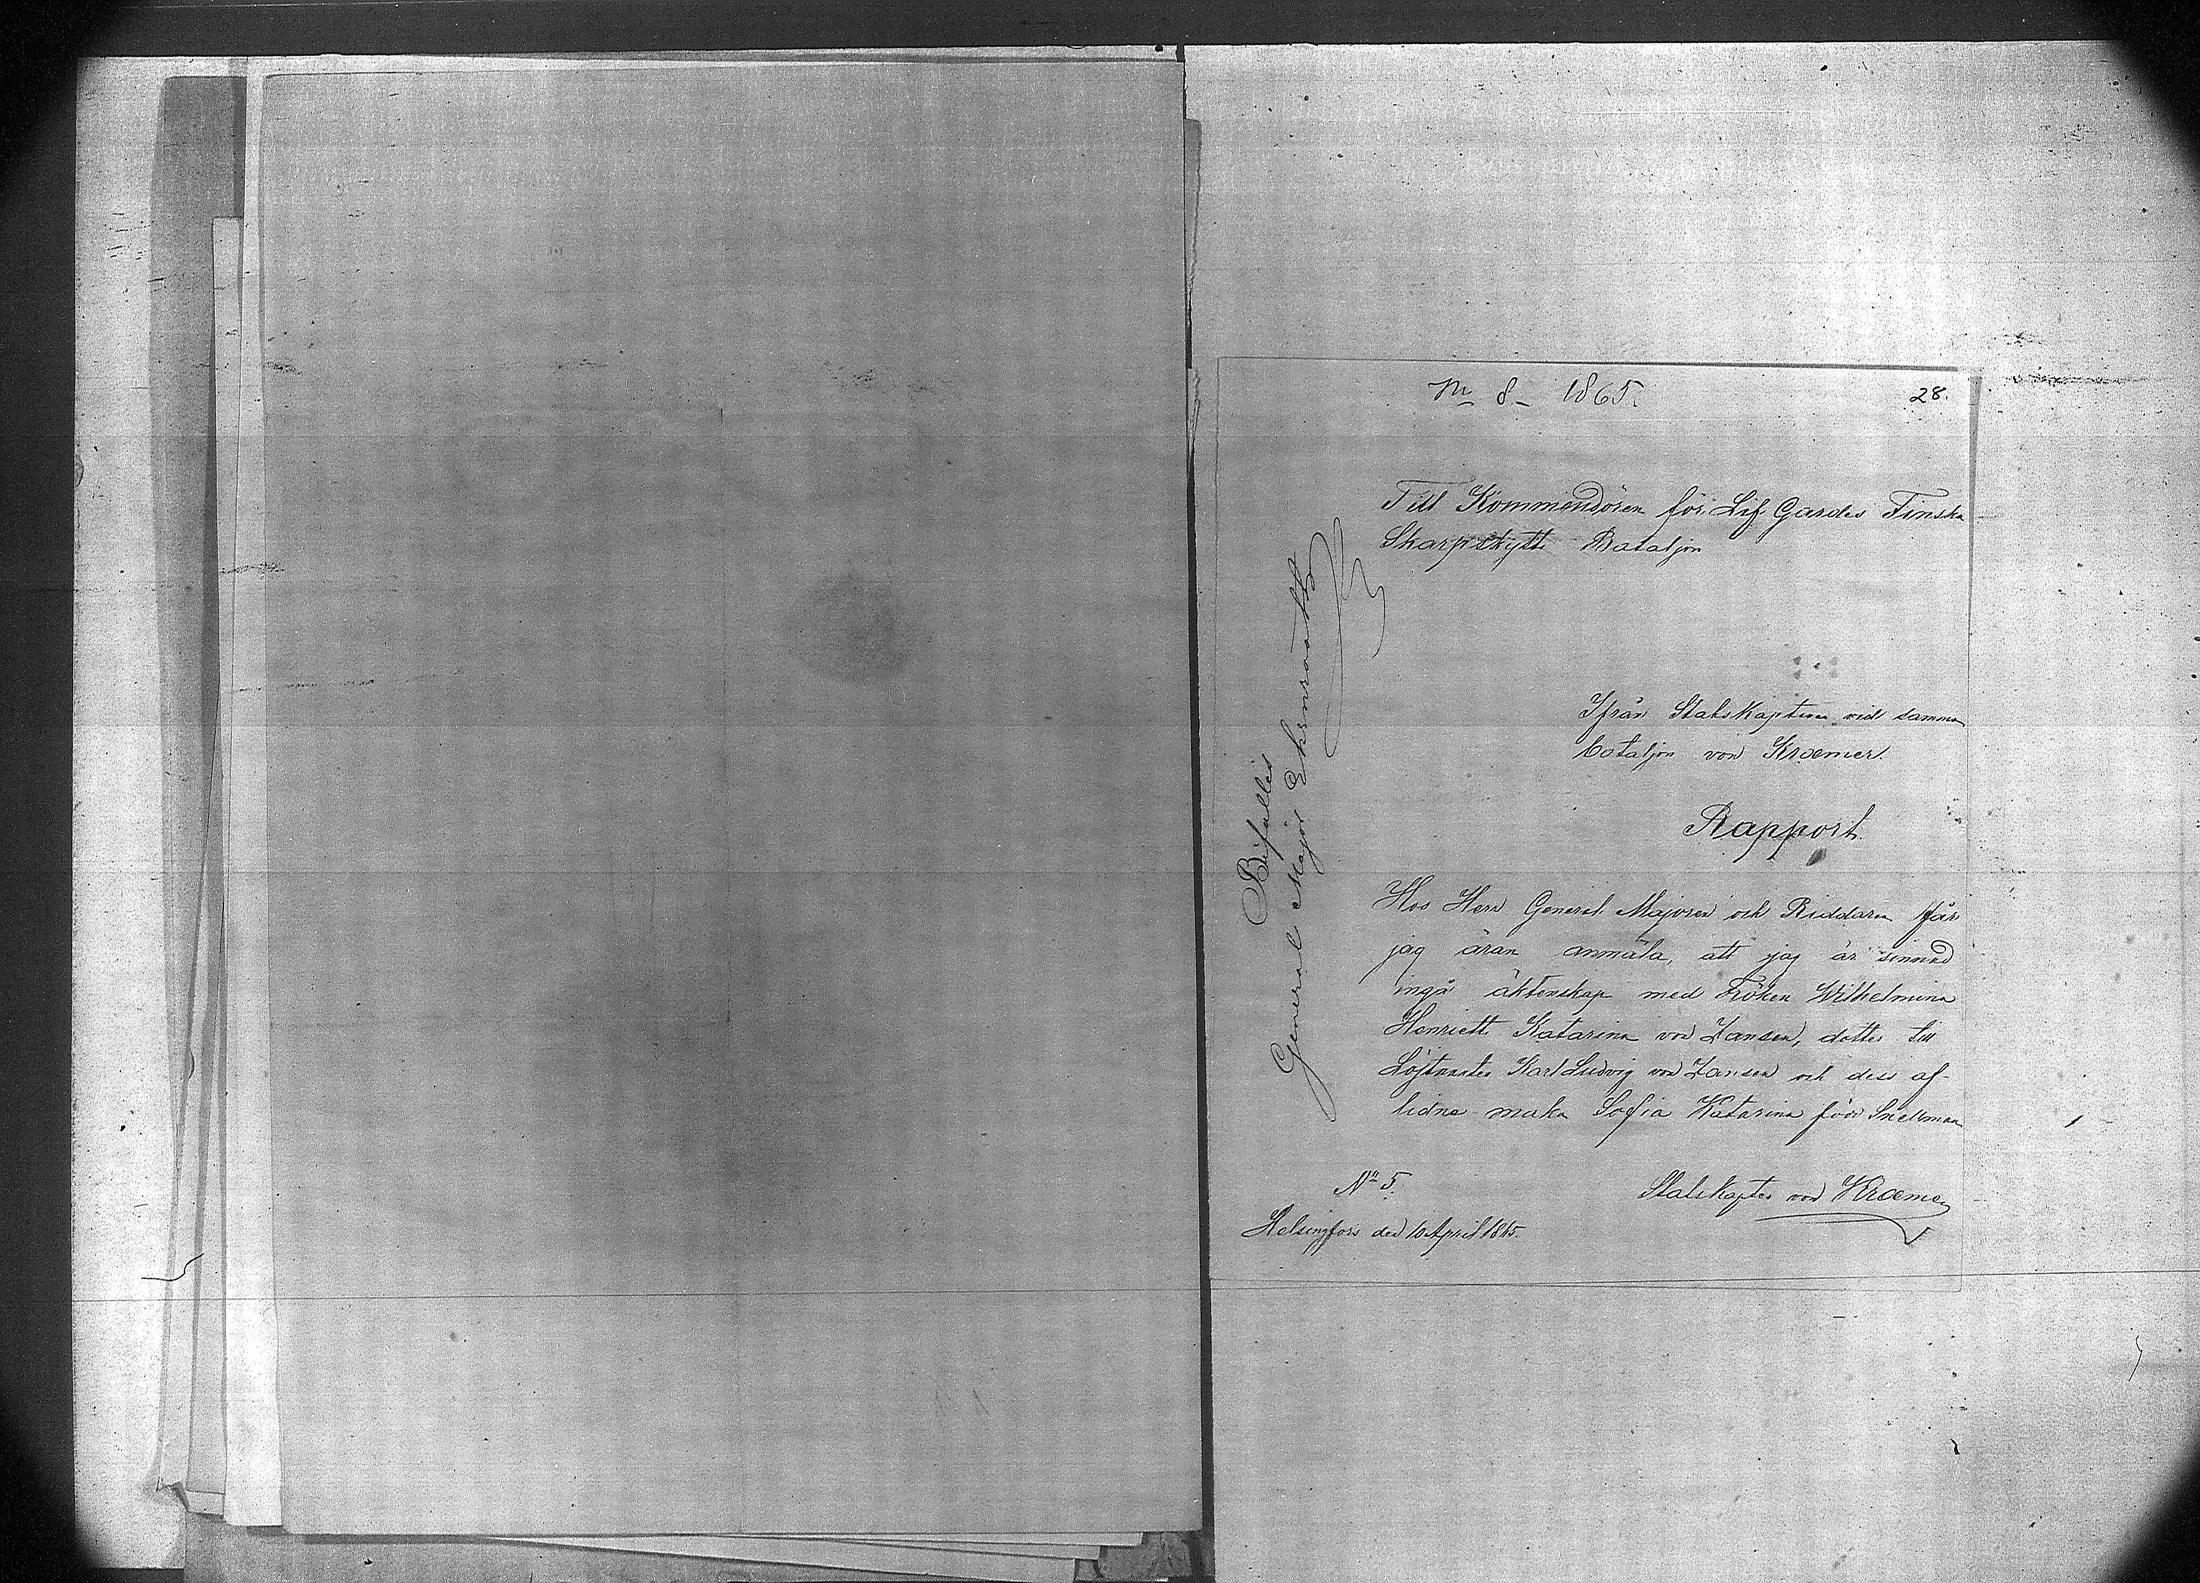 No 8 - 1865.
28.
Till Kommendören för Lif Gardes Finska
Skarpskytte Bataljon
Ifrån Stabskaptenen vid samma
bataljon von Kræmer.
Rapport.
Hos Herr General Majoren och Riddaren får
jag äran anmäla, att jag är sinnad
ingå äktenskap med Fröken Wilhelmina
Henriette Katarina von Jansen, dotter till
Löjtnanten Karl Ludvig von Jansen och dess af-
lidna maka Sofia Katarina född Snellman
Stabskapten von Kræmer
No 5.
Helsingfors den 10 April 1865.
Bifalles
General Major